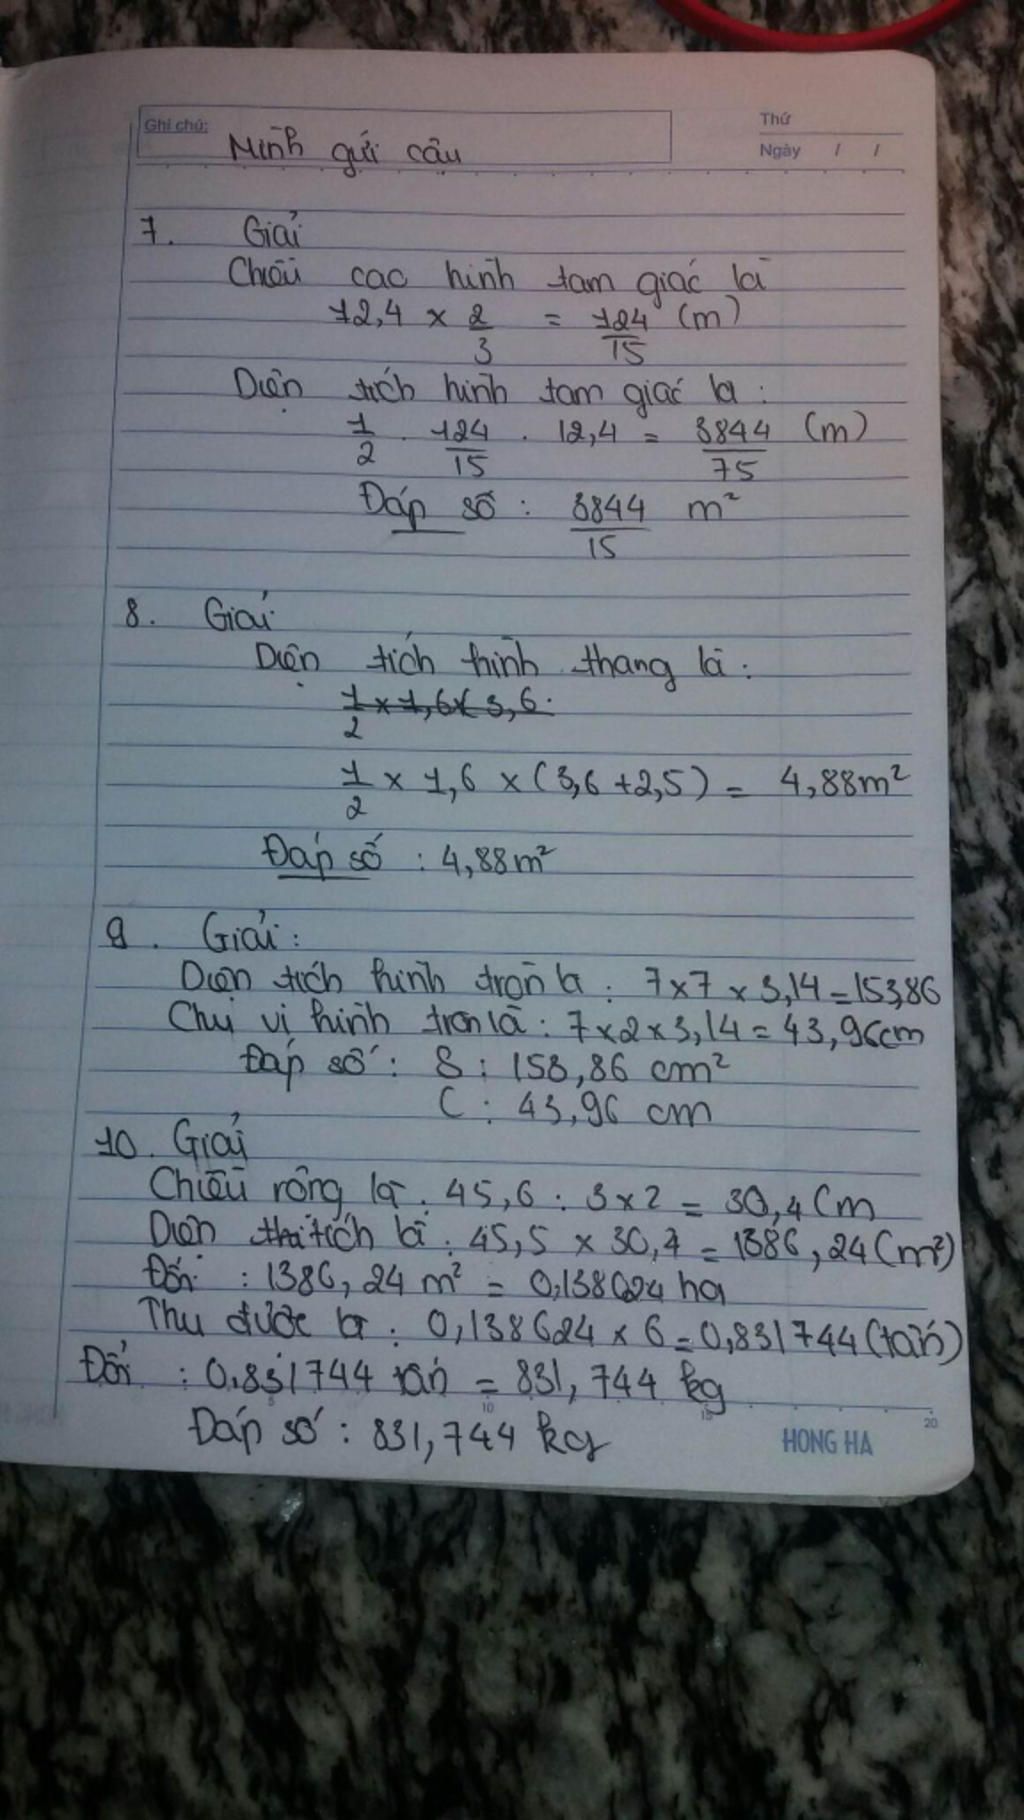 Ghi chú:
Mình gửi cậu
Thứ
Ngày / /
7. Giải
Chiều cao hình tam giác là
12,4 × 2/3 = 124/15 (m)
Diện tích hình tam giác là :
1/2 . 124/15 . 12,4 = 3844/75 (m)
Đáp số : 3844/15 m²
8. Giải
Diện tích hình thang là :
1/2 × 1,6 × 3,6.
1/2 × 1,6 × (3,6 + 2,5) = 4,88m²
Đáp số : 4,88m²
9. Giải :
Diện tích hình tròn là : 7×7 × 3,14 = 153,86
Chu vi hình tròn là : 7×2×3,14 = 43,96cm
Đáp số : S : 153,86 cm²
C : 43,96 cm
10. Giải
Chiều rông là : 45,6 : 3 × 2 = 30,4 Cm
Diện tích là : 45,5 × 30,4 = 1386,24 (m²)
Đổi : 1386,24 m² = 0,138624 ha
Thu được là : 0,138624 × 6 = 0,831744 (tấn)
Đổi : 0,831744 tấn = 831,744 kg
Đáp số : 831,744 kg
5 10 15 20
HONG HA